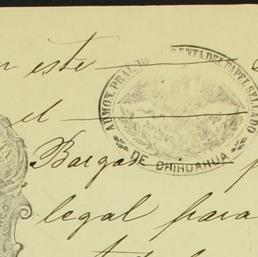 n este
ADMON. PRAL. DE RENTA DEL PAPEL SELLADO
el
DE CHIHUAHUA
Bargas p
legal para